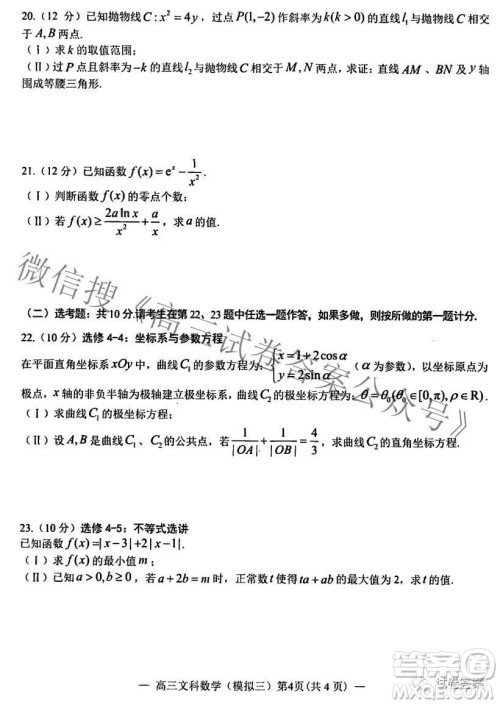 20.(12 分) 已知抛物线 C:x²=4y，过点 P(1,-2) 作斜率为 k(k>0) 的直线 l₁ 与抛物线 C 相交
于 A,B 两点.
(Ⅰ) 求 k 的取值范围;
(Ⅱ) 过 P 点且斜率为 -k 的直线 l₂ 与抛物线 C 相交于 M,N 两点，求证：直线 AM 、BN 及 y 轴
围成等腰三角形.
21.(12 分) 已知函数 f(x)=eˣ-1/x².
(Ⅰ) 判断函数 f(x) 的零点个数;
(Ⅱ) 若 f(x)≥(2a ln x)/x²+a/x，求 a 的值.
(二) 选考题：共 10 分.请考生在第 22、23 题中任选一题作答，如果多做，则按所做的第一题计分.
22.(10 分) 选修 4-4：坐标系与参数方程
在平面直角坐标系 xOy 中，曲线 C₁ 的参数方程为 {x=1+2cosα y=2sinα (α 为参数)，以坐标原点为
极点，x 轴的非负半轴为极轴建立极坐标系，曲线 C₂ 的极坐标方程：θ=θ₀(θ₀∈[0,π),ρ∈R).
(Ⅰ) 求曲线 C₁ 的极坐标方程;
(Ⅱ) 设 A,B 是曲线 C₁、C₂ 的公共点，若 1/|OA|+1/|OB|=4/3，求曲线 C₂ 的直角坐标方程.
23.(10 分) 选修 4-5：不等式选讲
已知函数 f(x)=|x-3|+2|x-1|.
(Ⅰ) 求 f(x) 的最小值 m;
(Ⅱ) 已知 a>0,b≥0，若 a+2b=m 时，正常数 t 使得 ta+ab 的最大值为 2，求 t 的值.
— 高三文科数学（模拟三）第4页(共 4 页) —
微信搜《高三试卷答案公众号》
试卷答案